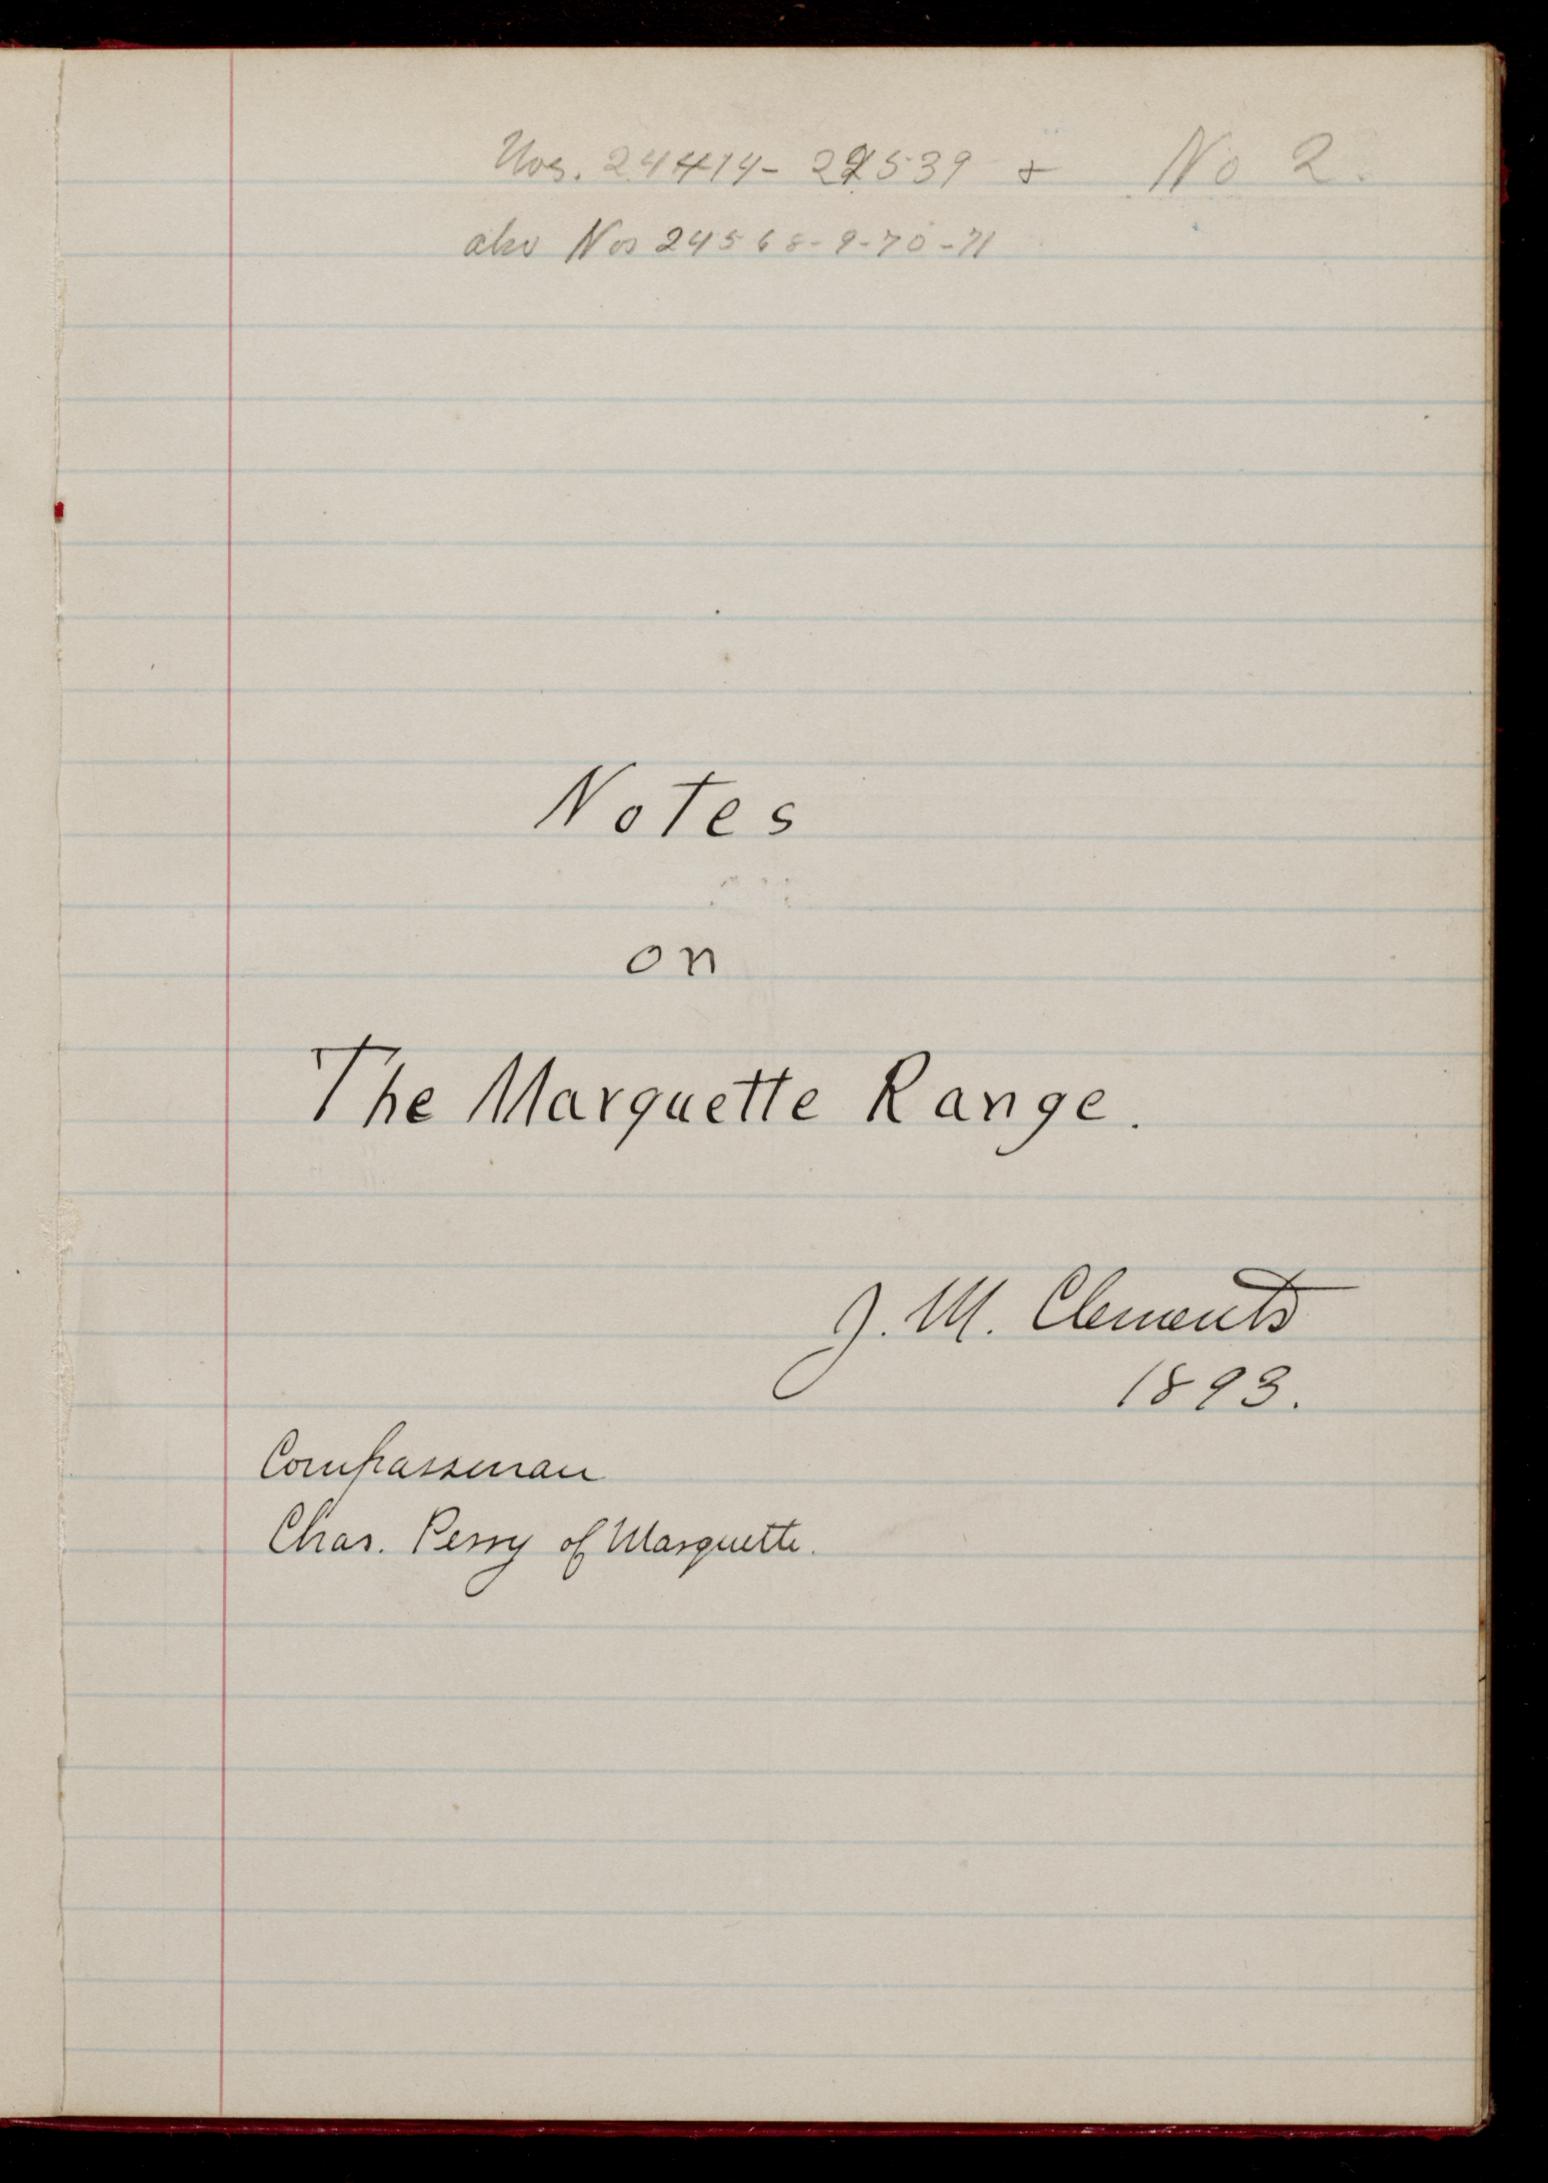 Nos. 24414-24539 & No 2.
also Nos 24568-9-70-71
Notes
on
The Marquette Range.
J. M. Clements
1893.
Compassman
Chas. Perry of Marquette.